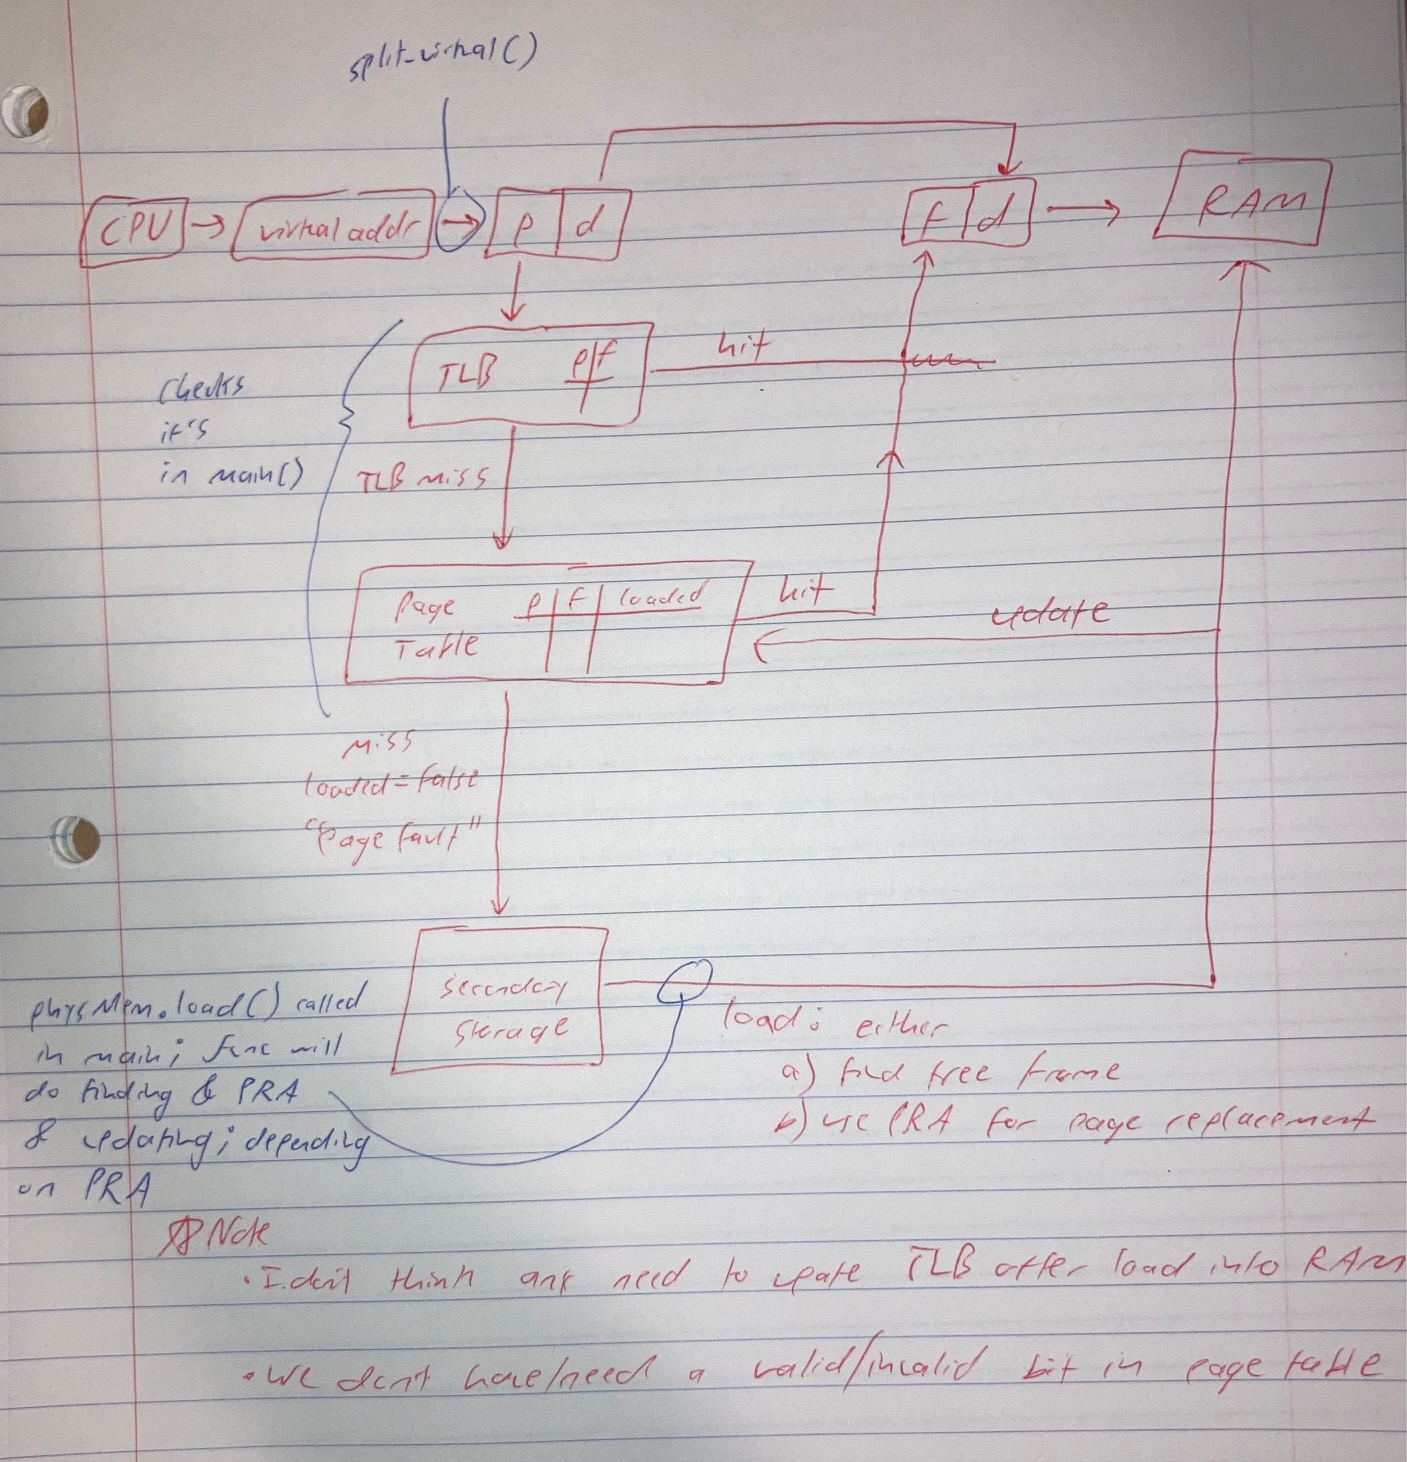 split_virtual()
CPU → virtual addr → p | d
f | d → RAM
TLB p|f
hit
checks
it's
in main()
TLB miss
Page p | f | loaded
Table
hit
update
miss
loaded = false
"Page fault"
secondary
storage
physMem.load() called
in main; func will
do finding & PRA
& updating; depending
on PRA
load: either
a) find free frame
b) use PRA for page replacement
Note
· I don't think any need to upate TLB after load into RAM
· we don't have/need a valid/invalid bit in page table